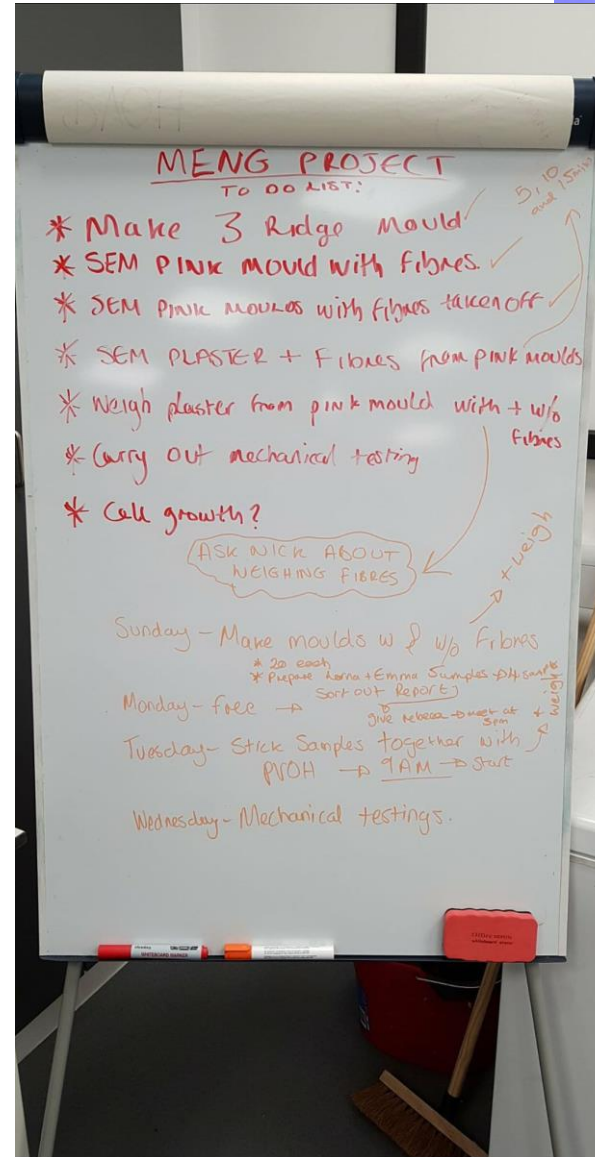 MENG PROJECT
TO DO LIST:
5, 10
and 15min
* Make 3 Ridge Mould ✓
* SEM PINK mould with fibres ✓
* SEM PINK MOULDS with fibres taken off ✓
* SEM PLASTER + Fibres from pink moulds
* Weigh plaster from pink mould with + w/o
fibres
* Carry out mechanical testing
* Cell growth?
ASK NICK ABOUT
WEIGHING FIBRES
Sunday - Make moulds w & w/o Fibres
→ + weigh
* 20 each
* Prepare Lorna + Emma Samples → 4
Monday - free → Sort out Report
give rebecca → meet at
+ weigh
Tuesday - Stick Samples together with
PVOH → 9AM → Start
Wednesday - Mechanical testings.
WHITEBOARD MARKER